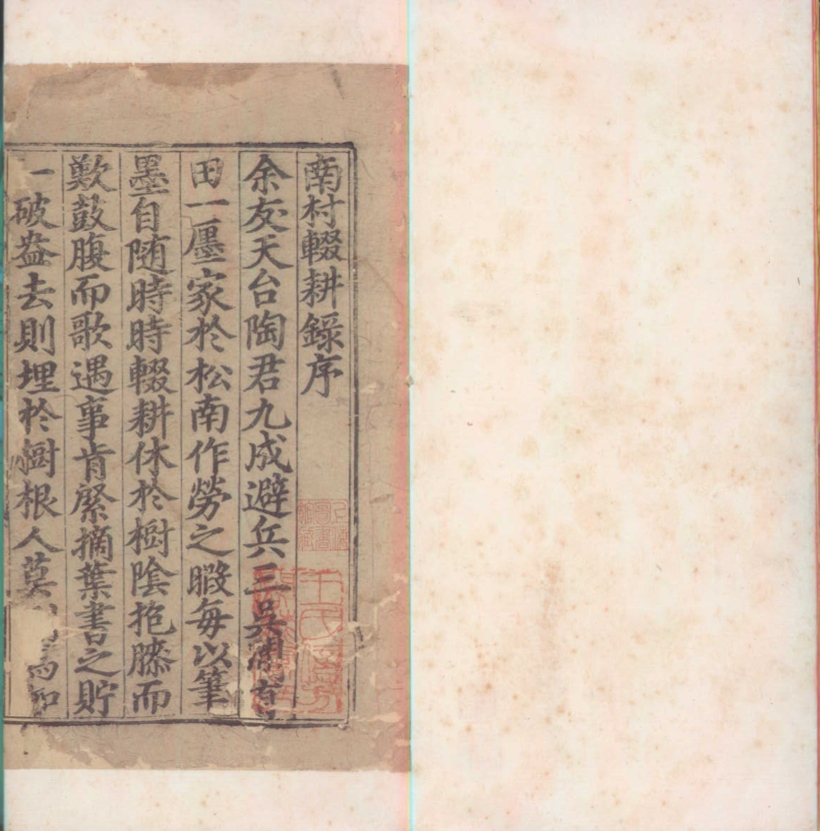 南村輟耕錄序
余友天台陶君九成避兵三吳間有
田一廛家於松南作勞之暇每以筆
墨自随時時輟耕休於樹陰抱膝而
歎鼓腹而歌遇事肯綮摘葉書之貯
一破盎去則埋於樹根人莫